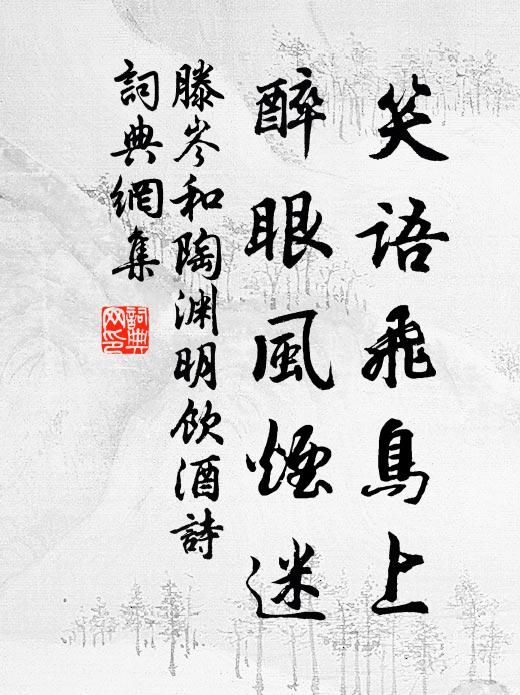 笑語飛鳥上
醉眼風煙迷
滕岑和陶淵明飲酒詩
詞典網集
詞典網印